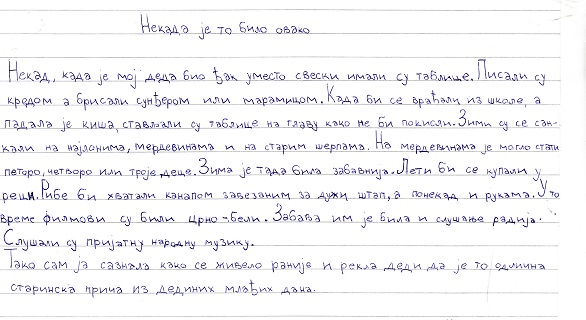 Некада је то било овако
Некад, када је мој деда био ђак уместо свески имали су таблице. Писали су
кредом а брисали сунђером или марамицом. Када би се враћали из школе, а
падала је киша, стављали су таблице на главу како не би покисли. Зими су се сан-
кали на најлонима, мердевинама и на старим шерпама. На мердевинама је могло стати
петоро, четворо или троје деце. Зима је тада била забавнија. Лети би се купали у
реци. Рибе би хватали канапом завезаним за дужи штап, а понекад и рукама. У то
време филмови су били црно-бели. Забава им је била и слушање радија.
Слушали су пријатну народну музику.
Тако сам ја сазнала како се живело раније и рекла деди да је то одлична
старинска прича из дединих млађих дана.